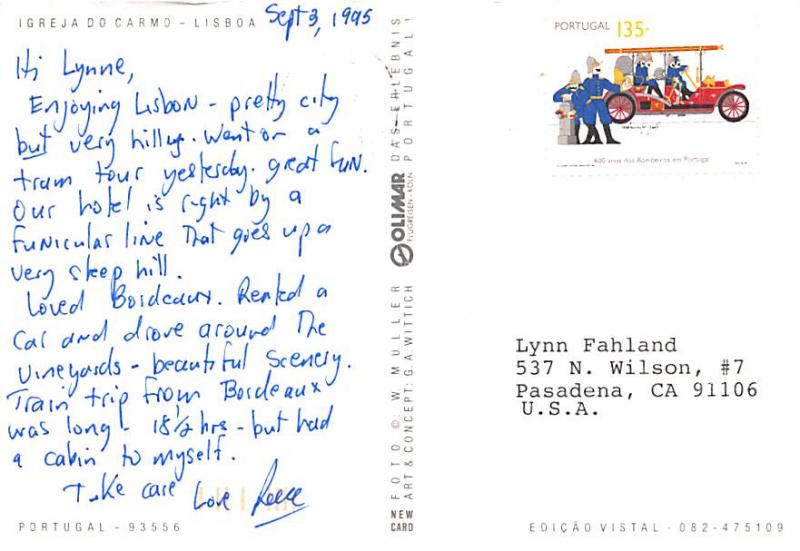 IGREJA DO CARMO - LISBOA
Sept 3, 1995
Hi Lynne,
Enjoying Lisbon - pretty city
but very hilly. Went on a
tram tour yesterday. great fun.
Our hotel is right by a
funicular line that goes up a
very steep hill.
Loved Bordeaux. Rented a
car and drove around the
vineyards - beautiful scenery.
Train trip from Bordeaux
was long - 18 1/2 hrs - but had
a cabin to myself.
Take care
Love Reece
PORTUGAL - 93556
FOTO ©: W. MÜLLER
ART & CONCEPT: G.A. WITTICH
NEW
CARD
OLIMAR
FLUGREISEN · KÖLN
DAS ERLEBNIS
PORTUGAL!
PORTUGAL 135.-
600 anos dos Bombeiros em Portugal
Lynn Fahland
537 N. Wilson, #7
Pasadena, CA 91106
U.S.A.
EDIÇÃO VISTAL · 082-475109